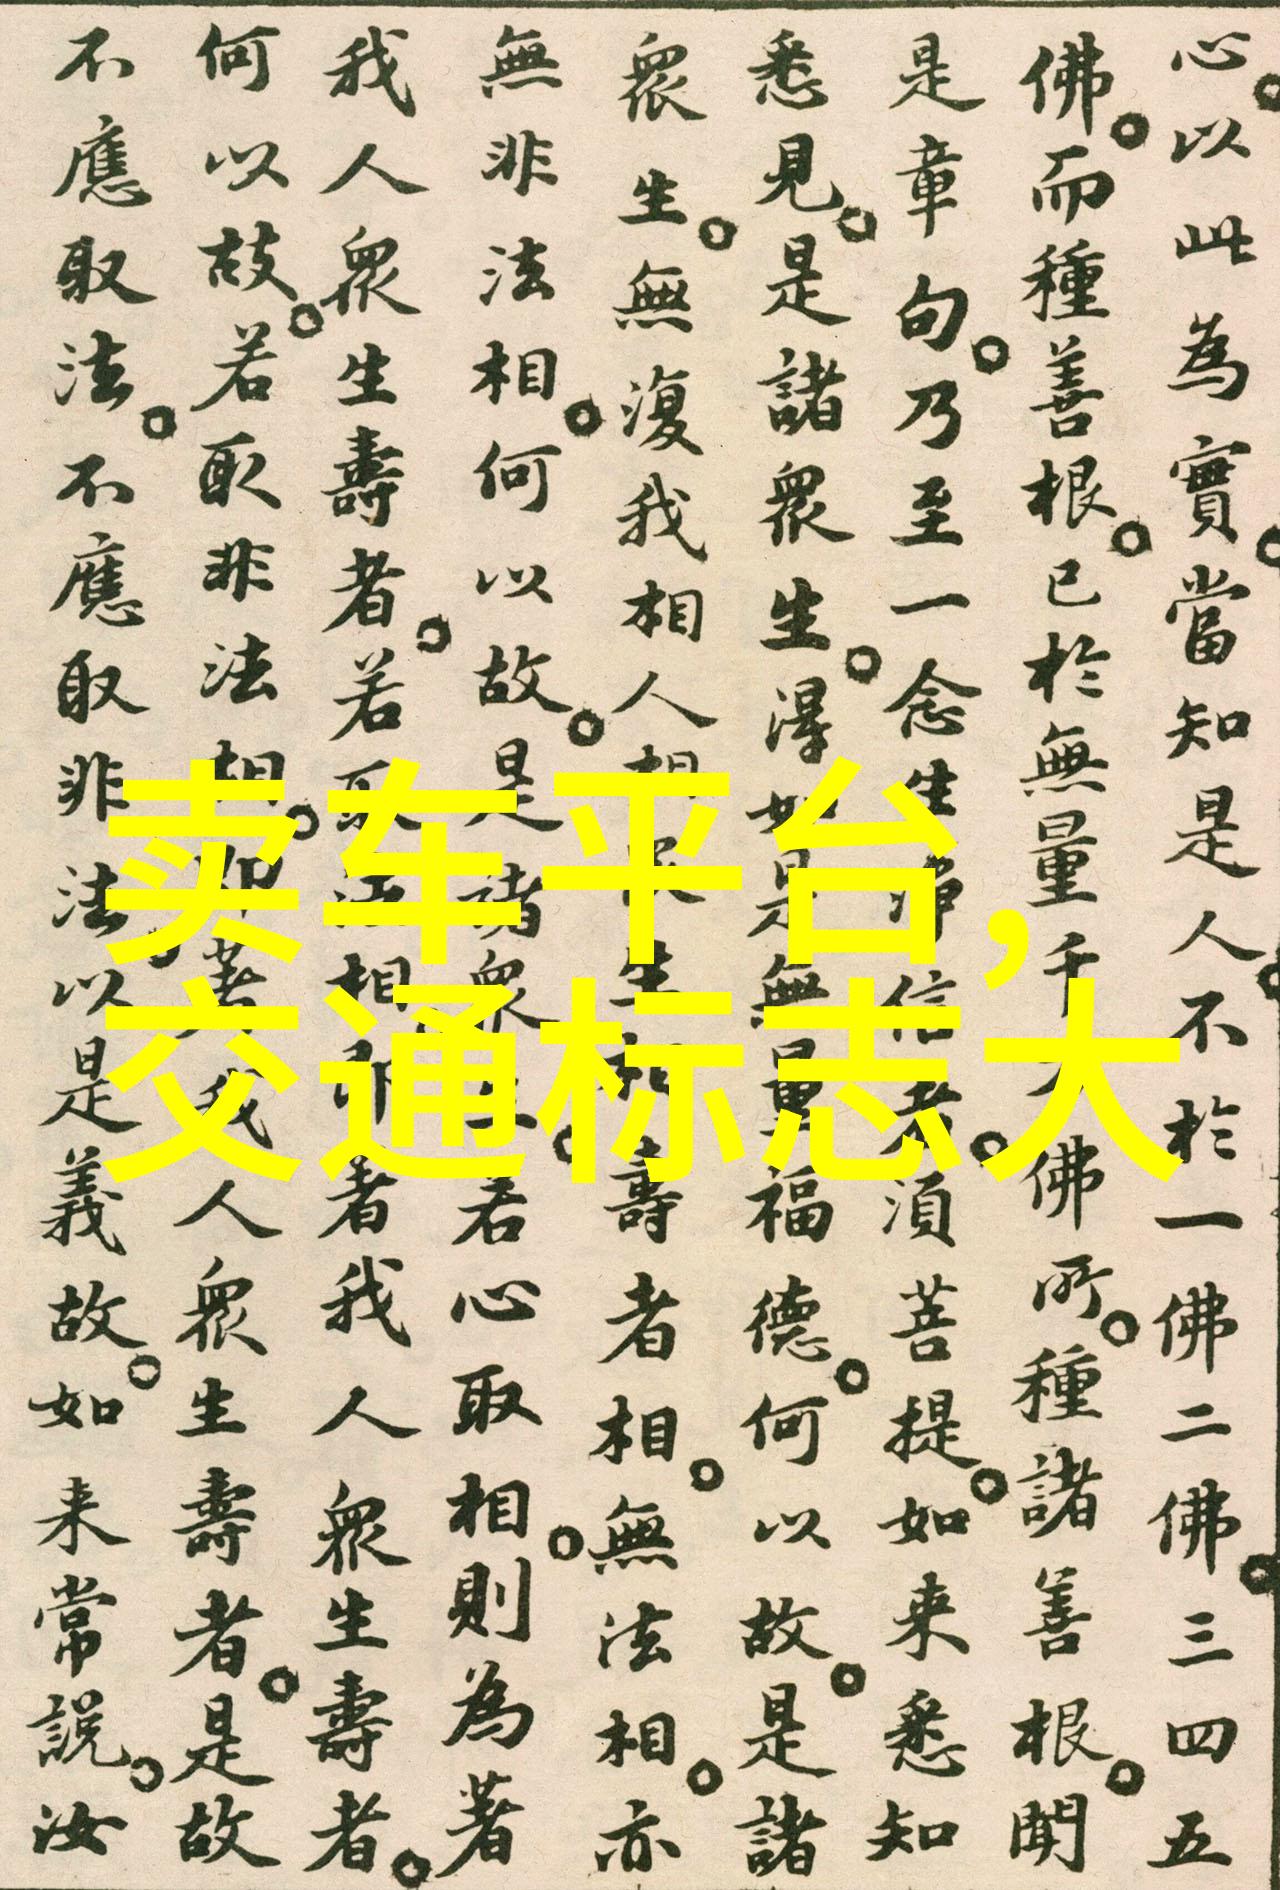 心。以此為實。當知是人。不於一佛二佛。三四五
佛。而種善根。已於無量千佛所。種諸善根。聞
是章句。乃至一念生淨信者。須菩提。如来悉知
悉見。是諸衆生。得如是無量福德。何以故。是諸
衆生。無復我相人相衆生相壽者相。無法相。亦
無非法相。何以故。是諸衆生。若心取相。則為著
我人衆生壽者。若取法相即著我人衆生壽者。
何以故。若取非法相。即著我人衆生壽者。是故
不應取法。不應取非法。以是義故。如来常說。汝
卖车平台,
交通标志大